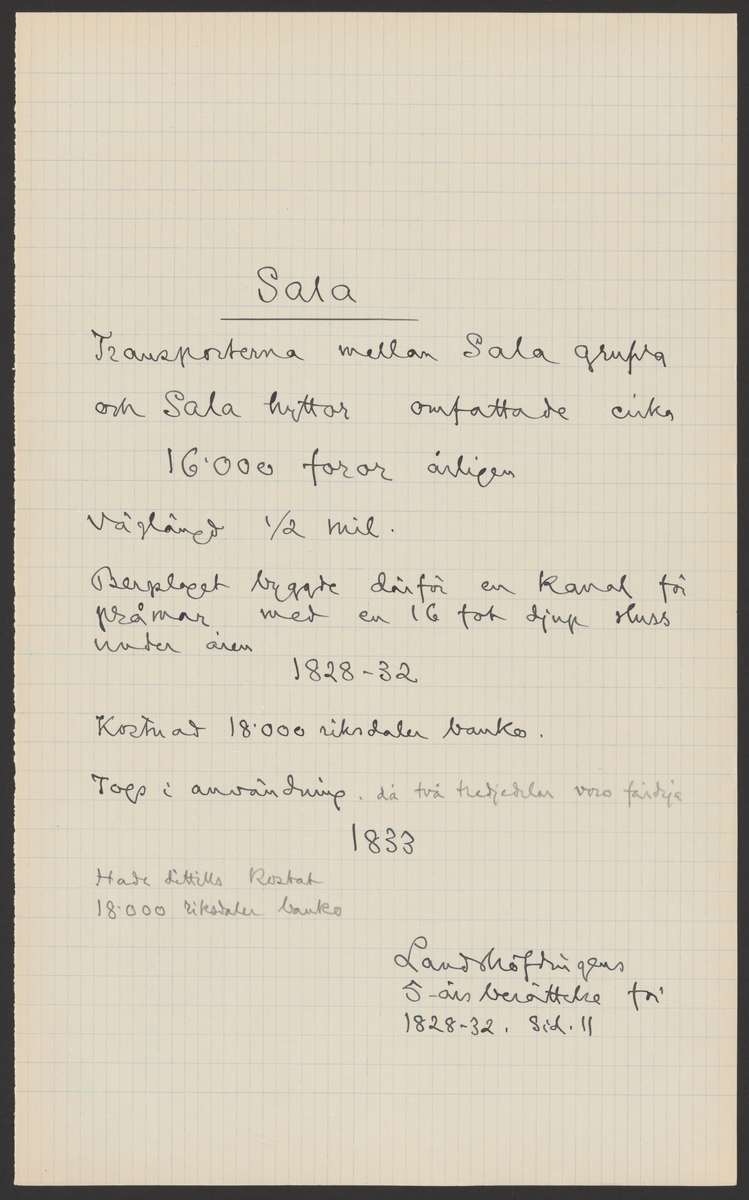 Sala
Transporterna mellan Sala gruva
och Sala hyttor omfattade cirka
16·000 foror årligen
Väglängd 1/2 mil.
Bergslaget byggde därför en kanal för
pråmar med en 16 fot djup sluss
under åren
1828-32
Kostnad 18·000 riksdaler banko.
Togs i användning. då två tredjedelar voro färdiga
1833
Hade dittills kostat
18·000 riksdaler banko
Landshöfdingens
5-års berättelse för
1828-32. Sid. 11